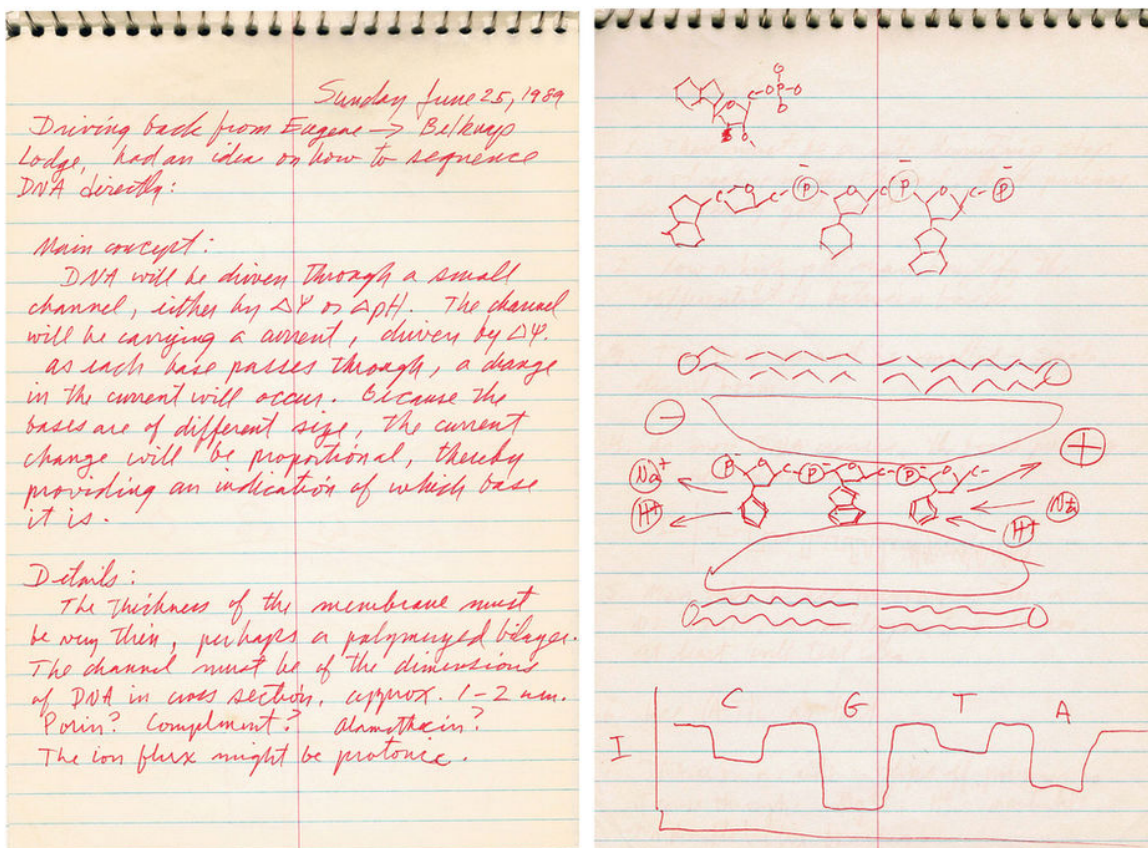 Sunday June 25, 1989
Driving back from Eugene → Belknap
Lodge, had an idea on how to sequence
DNA directly:
Main concept:
DNA will be driven through a small
channel, either by ΔΨ or ΔpH. The channel
will be carrying a current, driven by ΔΨ.
as each base passes through, a change
in the current will occur. Because the
bases are of different size, the current
change will be proportional, thereby
providing an indication of which base
it is.
Details:
The thickness of the membrane must
be very thin, perhaps a polymerized bilayer.
The channel must be of the dimensions
of DNA in cross section, approx. 1-2 nm.
Porin? Complement? Alamethicin?
The ion flux might be protonic.
O
C-O-P-O
O
O
O
C-P- O C-P- O C-P-
− +
P- O C-P- O C-P- O C-
Na+ Na+
H+ H+
C G T A
I